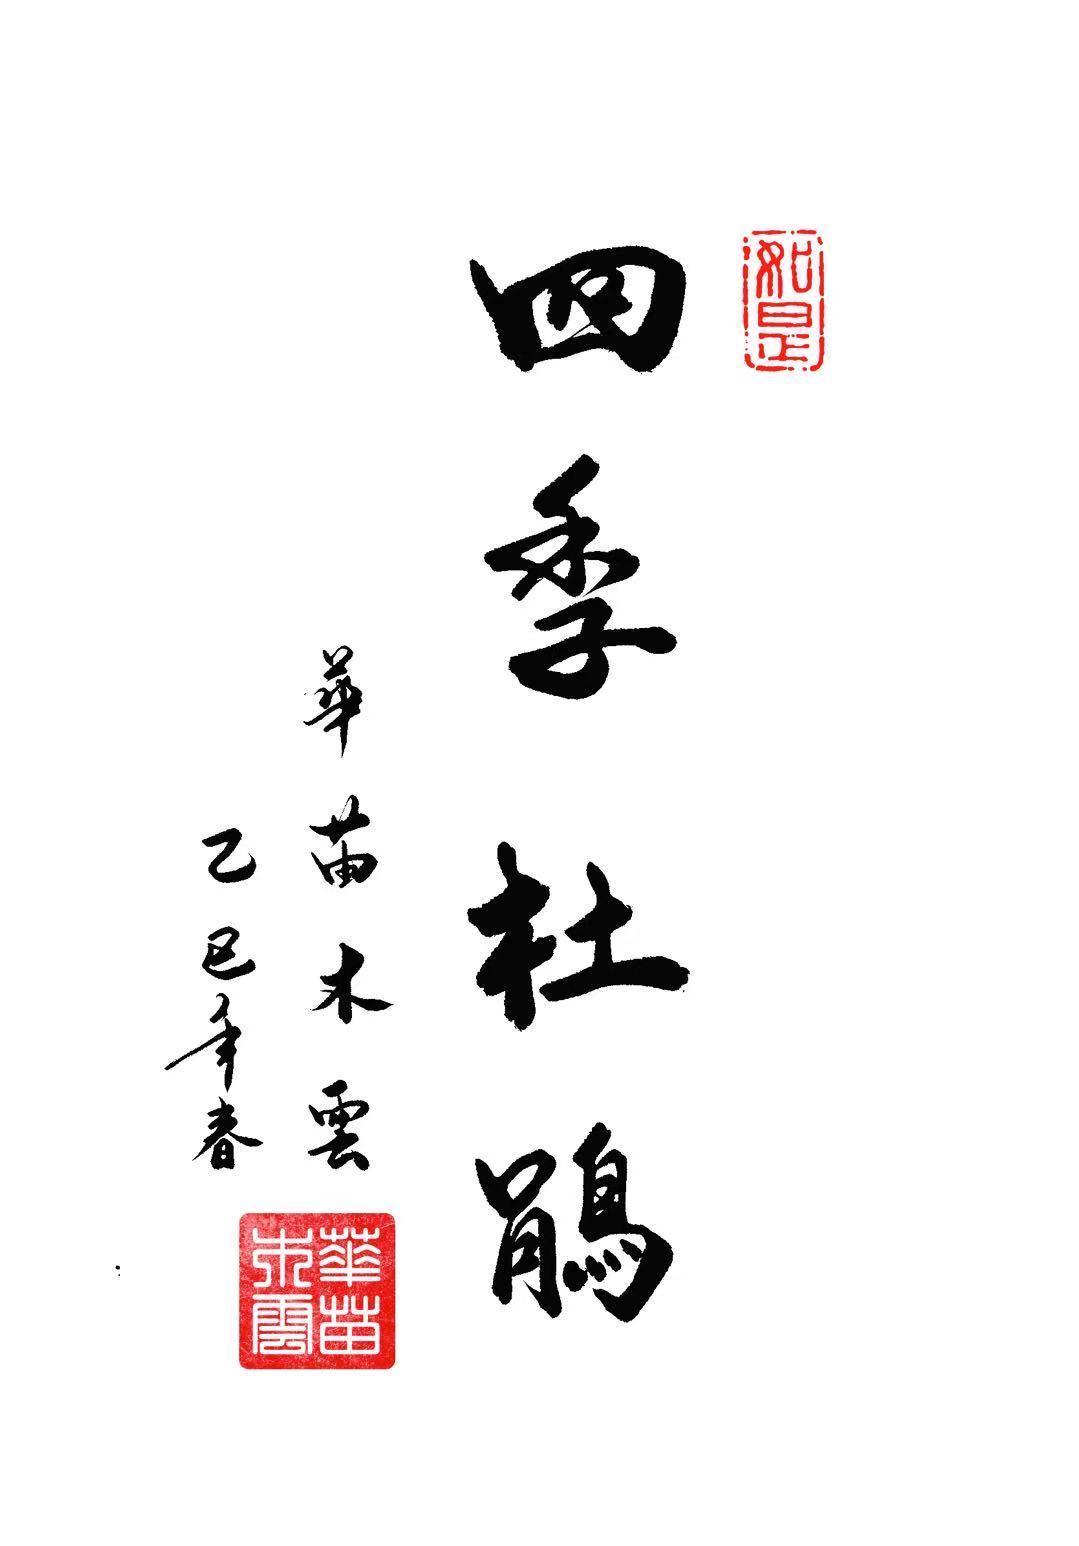 如是
四季杜鹃
華苗木雲
乙巳年春
華苗木雲